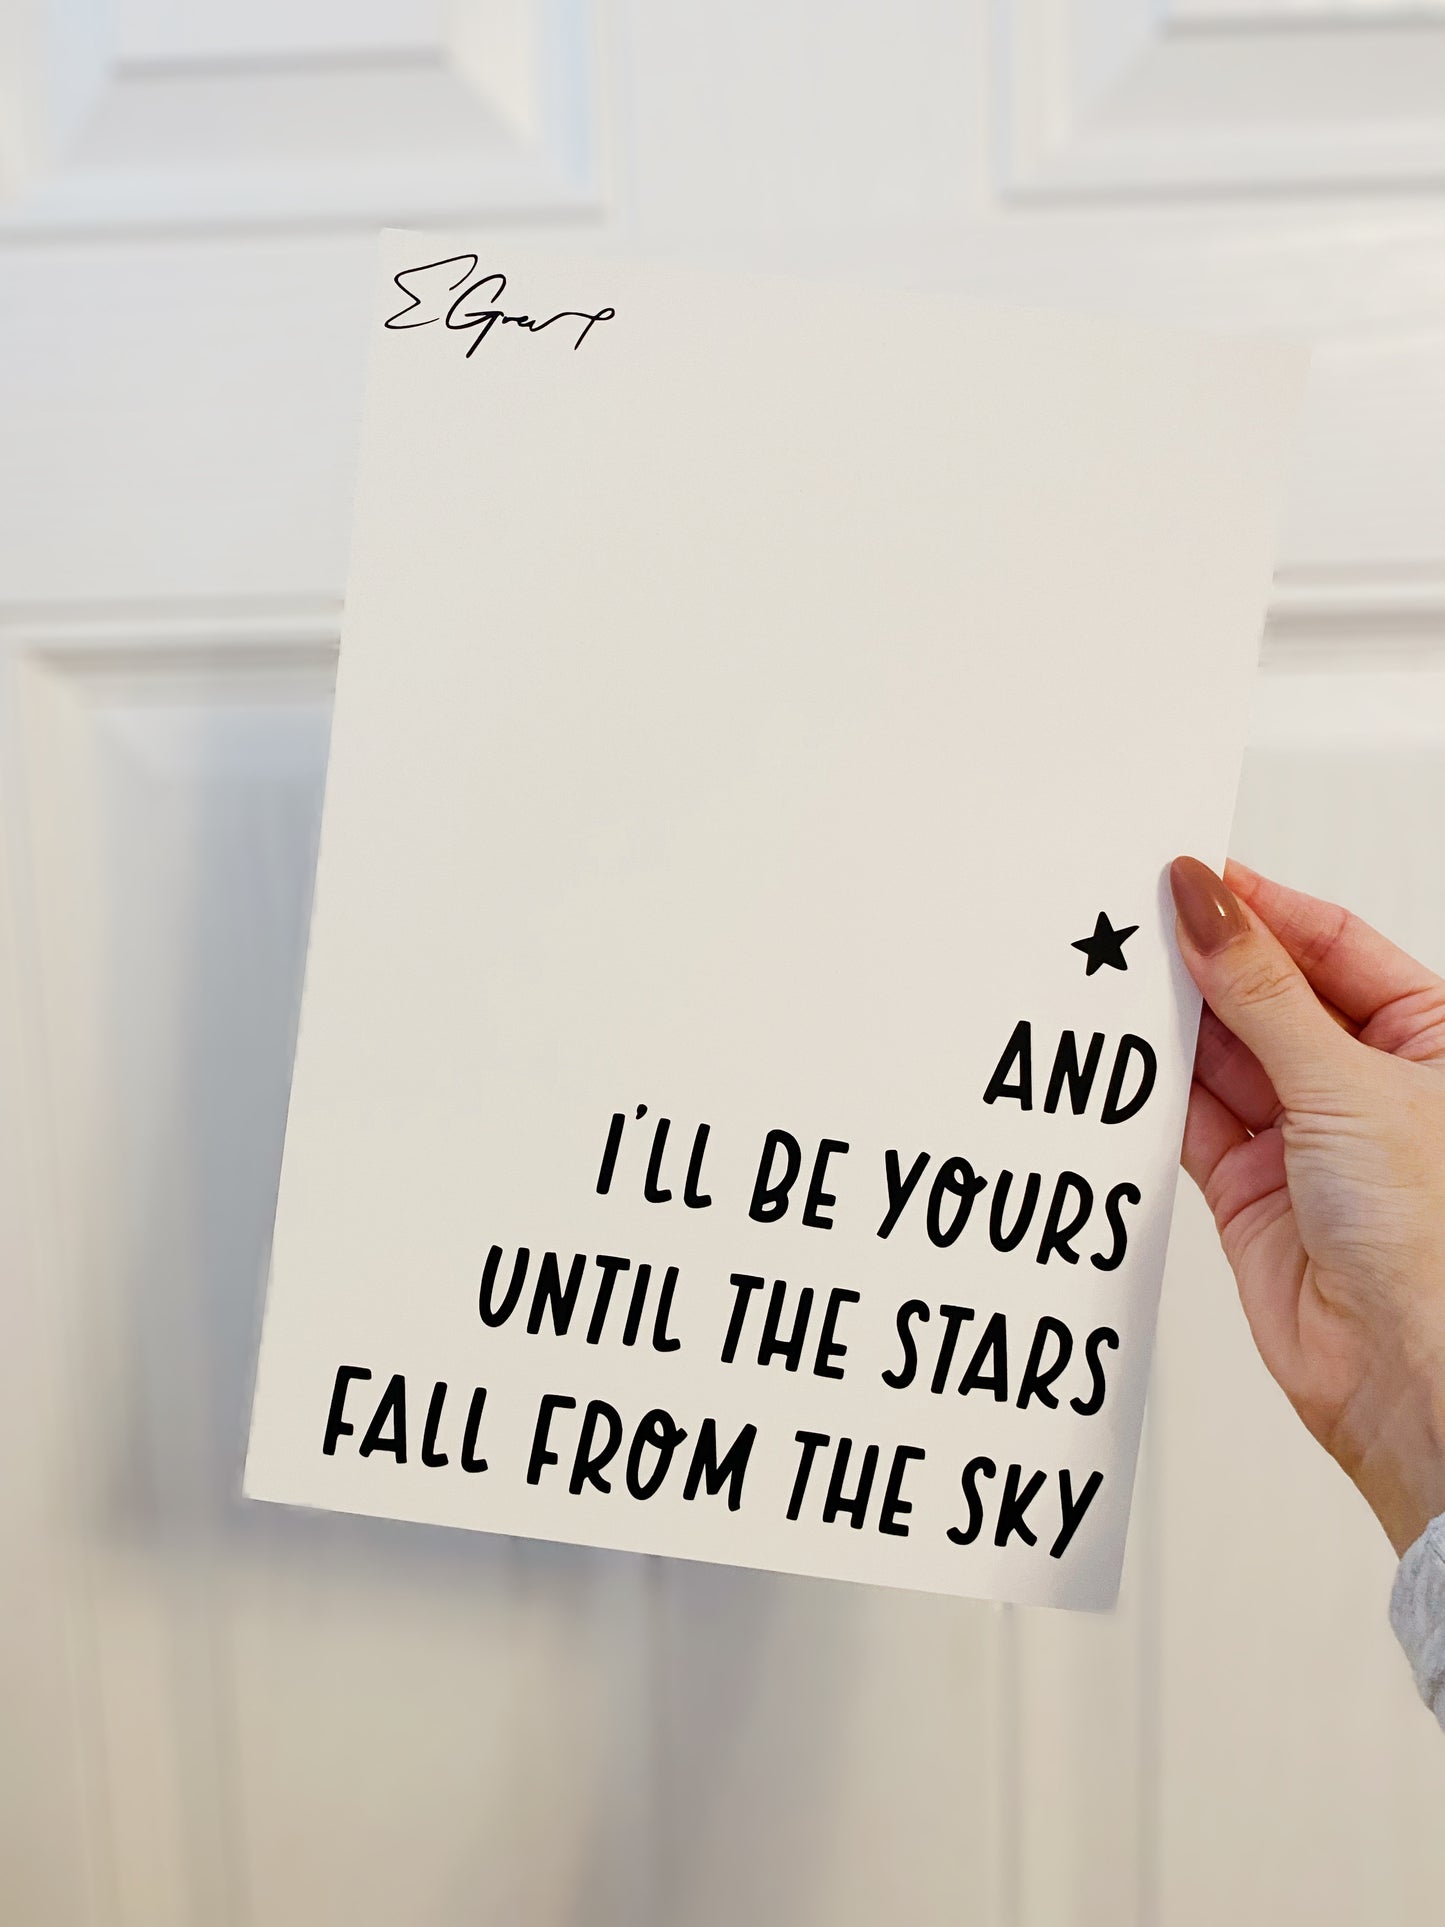 AND
I'LL BE YOURS
UNTIL THE STARS
FALL FROM THE SKY